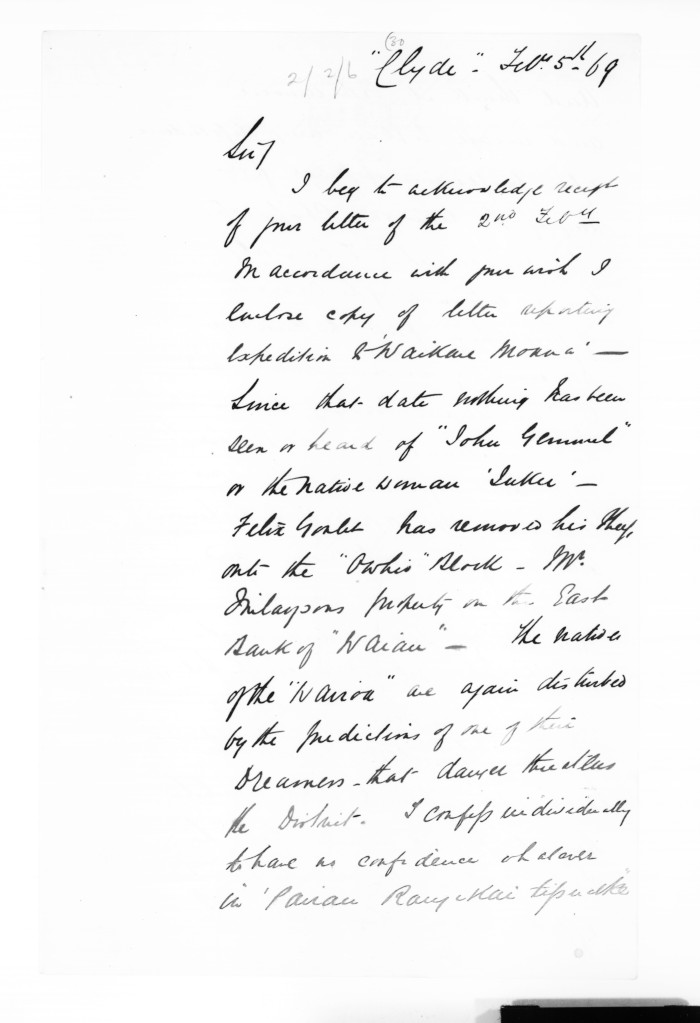 (30
2/2/6 "Clyde". Feby. 5th 69
Sir/
I beg to acknowledge receipt
of your letter of the 2nd Feby
In accordance with your wish I
enclose copy of letter reporting
expedition to 'Waikare Moana' —
Since that date nothing has been
seen or heard of "John Gemmel"
or the native woman —
Felix Goulet has removed his sheep
onto the "Owhio" Block — Mr.
Finlaysons property on the East
Bank of "Waiau" — The natives
of the "Wairoa" are again disturbed
by the predictions of one of their
Dreamers — that danger threatens
the District. I confess individually
to have no confidence whatever
in